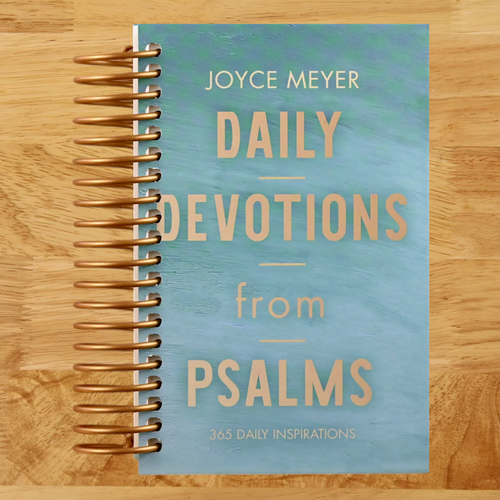 JOYCE MEYER
DAILY
DEVOTIONS
from
PSALMS
365 DAILY INSPIRATIONS